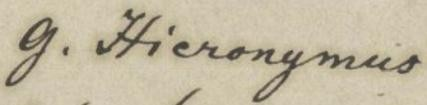 G. Hieronymus